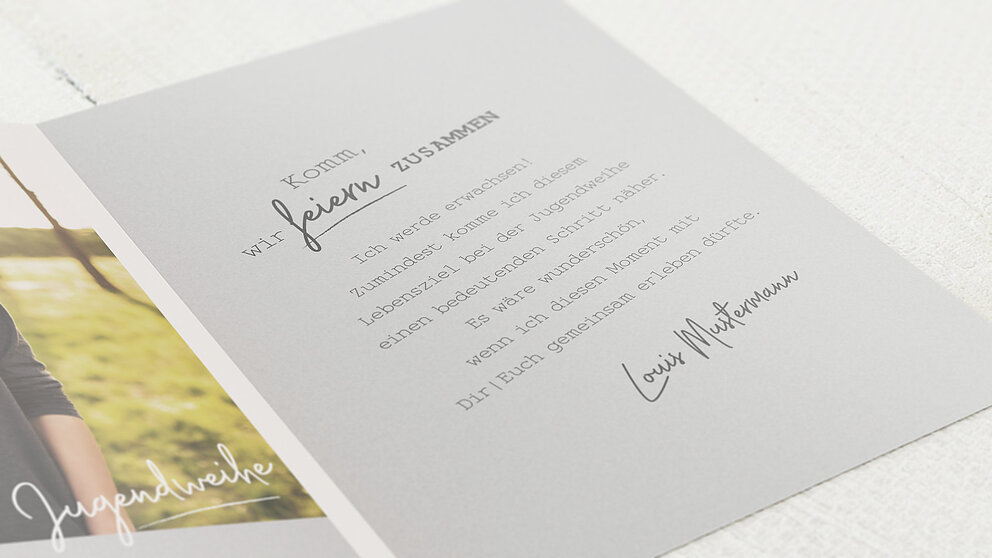 Komm,
wir feiern ZUSAMMEN
Ich werde erwachsen!
Zumindest komme ich diesem
Lebensziel bei der Jugendweihe
einen bedeutenden Schritt näher.
Es wäre wunderschön,
wenn ich diesen Moment mit
Dir|Euch gemeinsam erleben dürfte.
Louis Mustermann
Jugendweihe